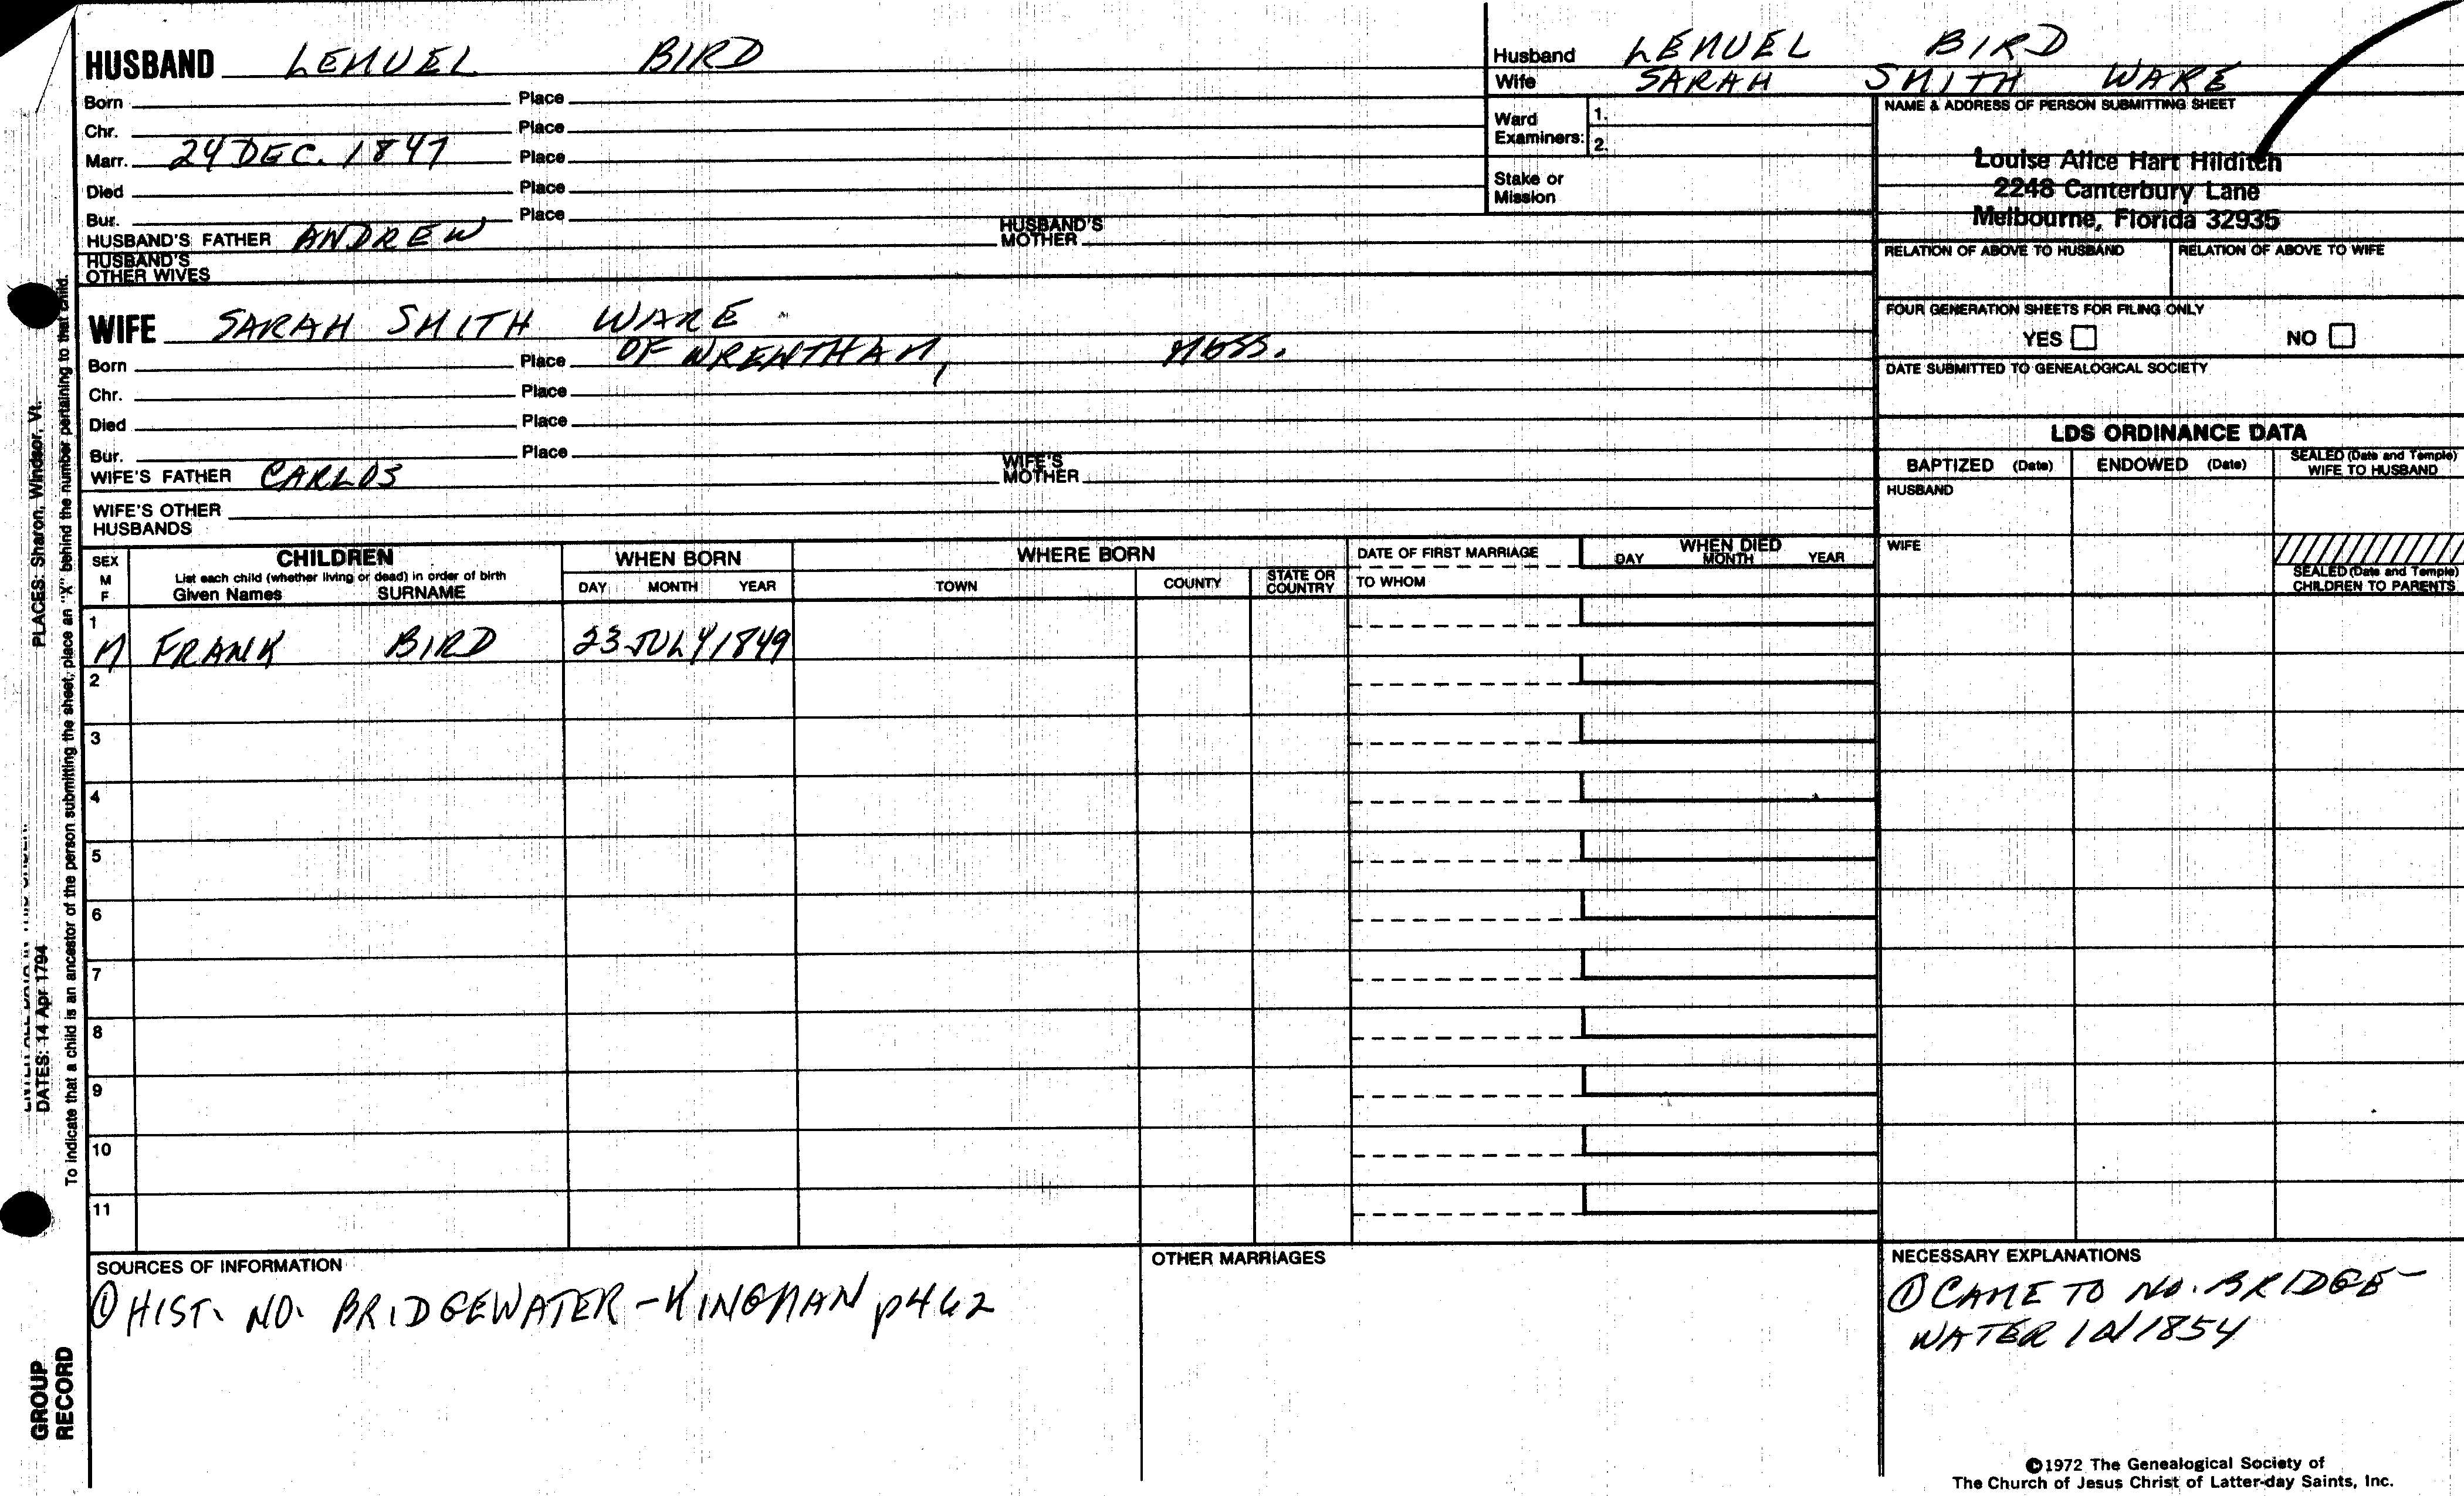 HUSBAND LEMUEL BIRD
Born Place
Chr. Place
Marr. 24 DEC. 1847 Place
Died Place
Bur. Place
HUSBAND'S FATHER ANDREW HUSBAND'S MOTHER
HUSBAND'S OTHER WIVES
WIFE SARAH SMITH WARE
Born Place OF WRENTHAM, MASS.
Chr. Place
Died Place
Bur. Place
WIFE'S FATHER CARLOS WIFE'S MOTHER
WIFE'S OTHER HUSBANDS
Husband LEMUEL BIRD
Wife SARAH SMITH WARE
Ward Examiners: 1.
2.
Stake or Mission
NAME & ADDRESS OF PERSON SUBMITTING SHEET
Louise Alice Hart Hilditch
2248 Canterbury Lane
Melbourne, Florida 32935
RELATION OF ABOVE TO HUSBAND RELATION OF ABOVE TO WIFE
FOUR GENERATION SHEETS FOR FILING ONLY
YES NO
DATE SUBMITTED TO GENEALOGICAL SOCIETY
LDS ORDINANCE DATA
BAPTIZED (Date) ENDOWED (Date) SEALED (Date and Temple) WIFE TO HUSBAND
HUSBAND
WIFE
SEALED (Date and Temple) CHILDREN TO PARENTS
SEX M F
CHILDREN
List each child (whether living or dead) in order of birth
Given Names SURNAME
WHEN BORN
DAY MONTH YEAR
WHERE BORN
TOWN COUNTY STATE OR COUNTRY
DATE OF FIRST MARRIAGE
TO WHOM
WHEN DIED
DAY MONTH YEAR
1
M FRANK BIRD 23 JULY 1849
2
3
4
5
6
7
8
9
10
11
SOURCES OF INFORMATION
① HIST. NO. BRIDGEWATER - KINGMAN p462
OTHER MARRIAGES
NECESSARY EXPLANATIONS
① CAME TO NO. BRIDGE-
WATER IN 1854
©1972 The Genealogical Society of
The Church of Jesus Christ of Latter-day Saints, Inc.
PLACES: Sharon, Windsor, Vt.
DATES: 14 Apr 1794
To indicate that a child is an ancestor of the person submitting the sheet, place an "X" behind the number pertaining to that child.
GROUP
RECORD